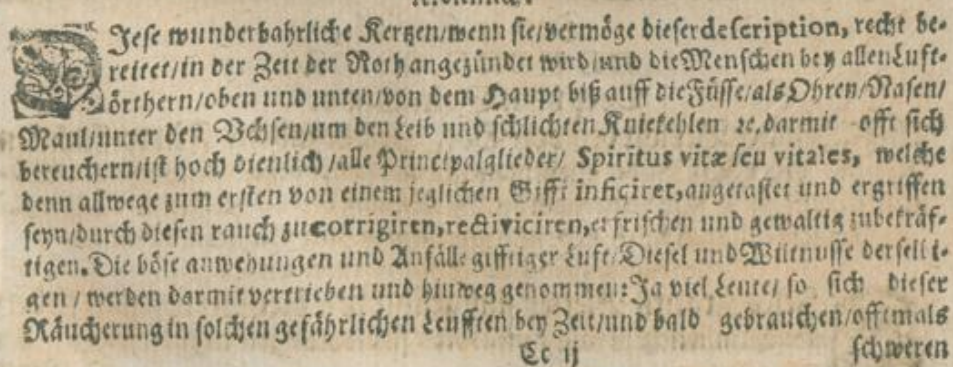 DJese wunderbahrliche Kertzen/wenn sie/vermöge dieser description, recht be-
reitet/in der Zeit der Noth angezündet wird/und die Menschen bey allen Luft-
örthern/oben und unten/von dem Haupt biß auff die Füsse/als Ohren/Nasen/
Maul/unter den Vchsen/um den Leib und schlichten Kniekehlen ꝛc. darmit offt sich
bereuchern/ist hoch dienlich/alle Principalglieder/ Spiritus vitæ seu vitales, welche
denn allwege zum ersten von einem jeglichen Gifft inficiret, angetastet und ergriffen
seyn/durch diesen rauch zu corrigiren, rectiviciren, erfrischen und gewaltig zubekräf-
tigen. Die böse anwehungen und Anfälle gifftiger Luft/ und derselbi-
gen/werden darmit vertrieben und hinweg genommen: Ja viel Leute/ so sich dieser
Räucherung in solchen gefährlichen Leufften bey Zeit/und bald gebrauchen/offtmals
Cc ij schweren